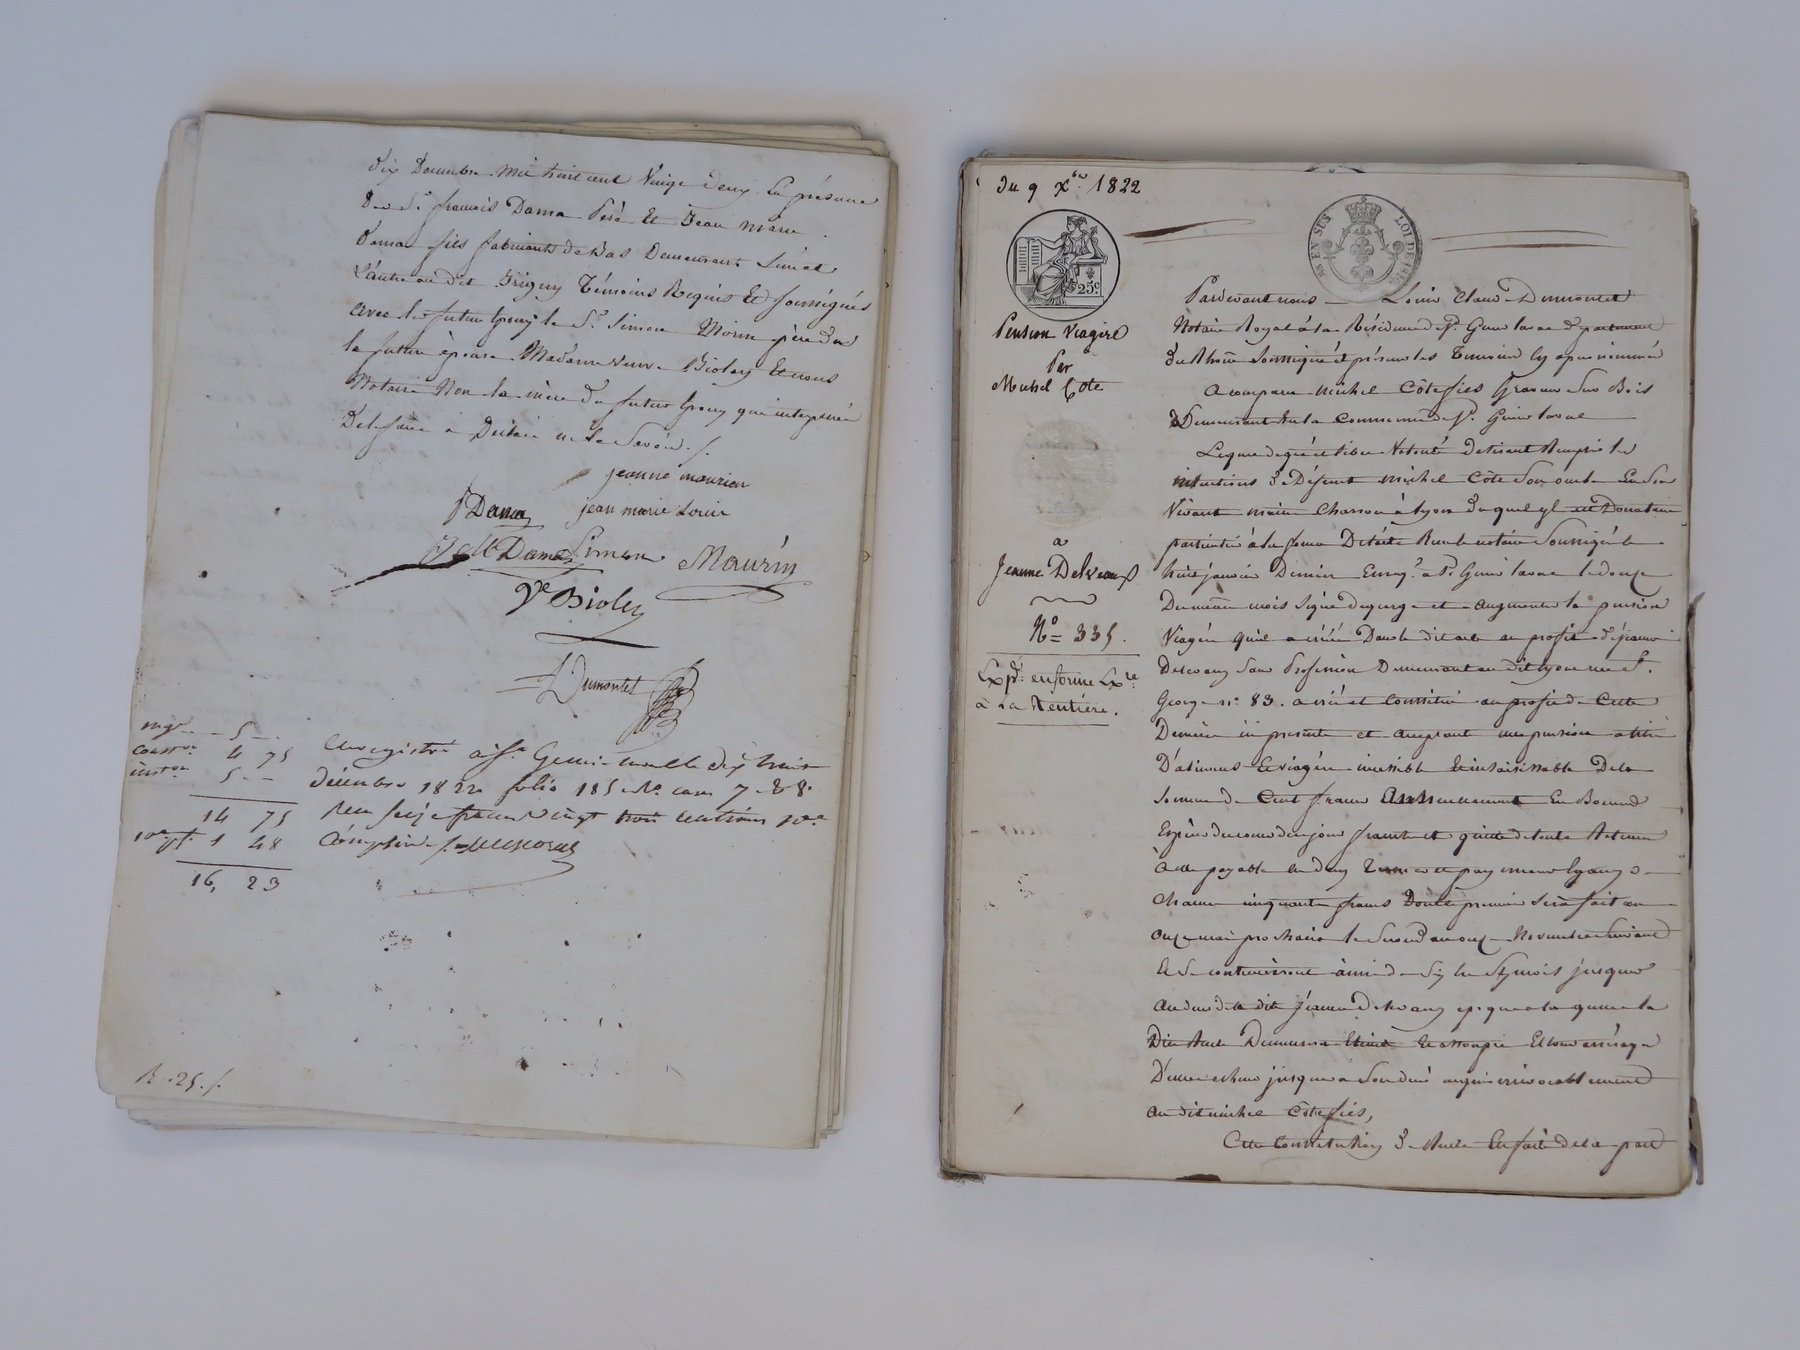 dix Decembre mil huit cent Vingt deux En présence
De Sr. françois Dama Père Et Jean Marie
Dama fils fabricants de Bas Demeurant Lun et
L'autre au dit Grigny Témoins Requis Et soussignés
avec le futur Epoux le Sr. Simon Morin père de
la future épouse Madame veuve Biolay Et nous
Notaire Non la mère du futur Epoux qui interpellée
De le faire a Déclaré ne le Savoir ./.
jeanne mourion
P Dama jean marie Louis
J M Dama Simon Maurin
Ve Bioley
Dumontet
mge 5
const 4 75
inst 5
14 75
10e 1 48
16, 23
Enregistré à St Genis Laval le dix huit
décembre 1822 folio 185 Ro case 7 & 8
Reçu seize francs vingt trois centimes 10e
Compris
R. 25./.
Du 9 Xbre 1822
25c
ES EN SUS LOI DE 1816
Pension Viagère
Par
Michel Côte
a
Jeanne Delveaux
No 335.
Expd. en forme Exre
à La Rentière.
Pardevant nous Louis Claude Dumontet
Notaire Royal à la Résidence de St. Genis Laval département
du Rhône Soussigné et présence des Témoins cy après nommés
a comparu michel Côte fils Graveur Sur Bois
Demeurant En la Commune de St. Genis Laval
Lequel de gré et libre Volonté desirant Remplir les
intentions De Défunt michel Côte Son oncle En Son
Vivant marin Charron à Lyon Duquel il est Donataire
particulier à la forme De l'acte Reçu le notaire Soussigné le
huit janvier Dernier Enreg. à St Genis Laval le douze
Du même mois Signé Deguerge et augmenter la pension
Viagère qu'il a créée Dans le dit acte au profit de jeanne
Delveaux Sans Profession Demeurant au dit Lyon rue St.
George no 83. a créé et Constitué au profit de Cette
Dernière ici présente et acceptant une pension a titre
D'aliments Et viagère incessible Et insaisissable De la
Somme de Cent francs Annuellement En Bonne
Espèce de cours de ce jour franche et quitte de toute Retenue
à elle payable En deux Termes et payemens égaux de
chacun cinquante francs Dont le premier sera fait au
onze mai prochain le Second au onze Novembre Suivant
Et Se continueront ainsi de Six En Six mois jusques
au décès de la dite jeanne Delveaux époque à laquelle la
Dite Rente Demeurera Eteinte Et assoupie Et tous arrérages
D'icelle échus jusques à Son décès acquis irrévocablement
au dit michel Côte fils,
Cette Constitution De Rente Est faite de la part